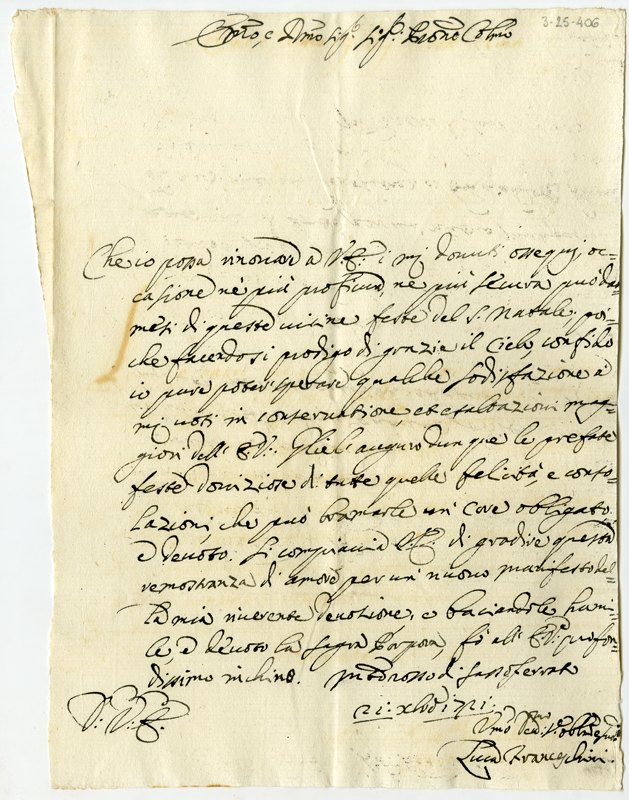 3-25-406
Em.o, e Rmo Sig.r Sig.r Prone Colmo
Che io possa rinovar a V.E. i mj dovuti ossequij, oc=
casione nè più proficua, ne più sicura può dar
mesi di queste vicine feste del S. Natale, poi=
che facendosi prodigo di grazie il Cielo, confido
io pure poter sperare qualche sodisfazione a'
mj voti in conservatione, et esaltazioni mag=
giori dell' E.V. Gliel' auguro dunque le prefate
feste doviziose di tutte quelle felicità, e conso=
lazioni, che può bramarle un' Core obligato,
e devoto. Si compiaccia V.E. di gradire questa
remostranza di amore per un' nuovo manifesto del=
la mia riverente devotione, e baciandole humi=
le, e devoto la Sagra Porpora, fò all' E.V. profon=
dissimo inchino. di Sassoferrato
21: Xbre 1721.
D. V. E.
Umo Devmo
Luca Franceschini.